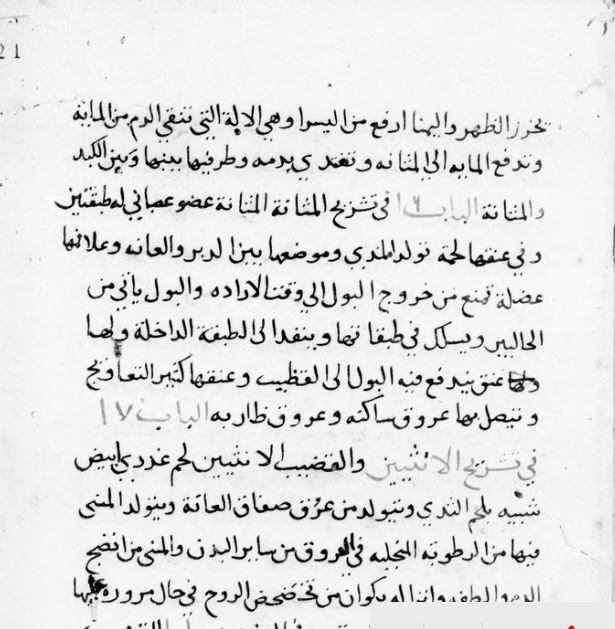 21
بخرز الظهر واليمنا ارفع من اليسرا وهي الالة التي تنقي الدم من المايه
وتدفع المايه الى المثانه وتغتدي بدمه وطرفيها بينها وبين الكبد
والمثانة الباب ١٦ في تشريح المثانة المثانة عضو عصباني له طبقتين
وفي عنقها لحمة تولد المدي وموضعها بين الدبر والعانه وعلا فمها
عضلة تمنع من خروج البول الى وقت الاراده والبول ياتي من
الحالبين ويسلك في طبقاتها وينفد الى الطبقة الداخلة ولها
عنق يندفع فيه البول الى القظيب وعنقها كثير التعاويج
وتتصل بها عروق ساكنه وعروق ظاربه الباب ١٧
في تشريح الانثيين والقضيب الانثيين لحم غددي ابيض
شبيه بلحم الثدي ويتولد من عرق صفاق العانة ويتولد المني
فيها من الرطوبه المنجلبه في العروق من ساير البدن والمني من انضج
الدم والطفه وانما له يكوان من تخضخض الروح في حال مروره